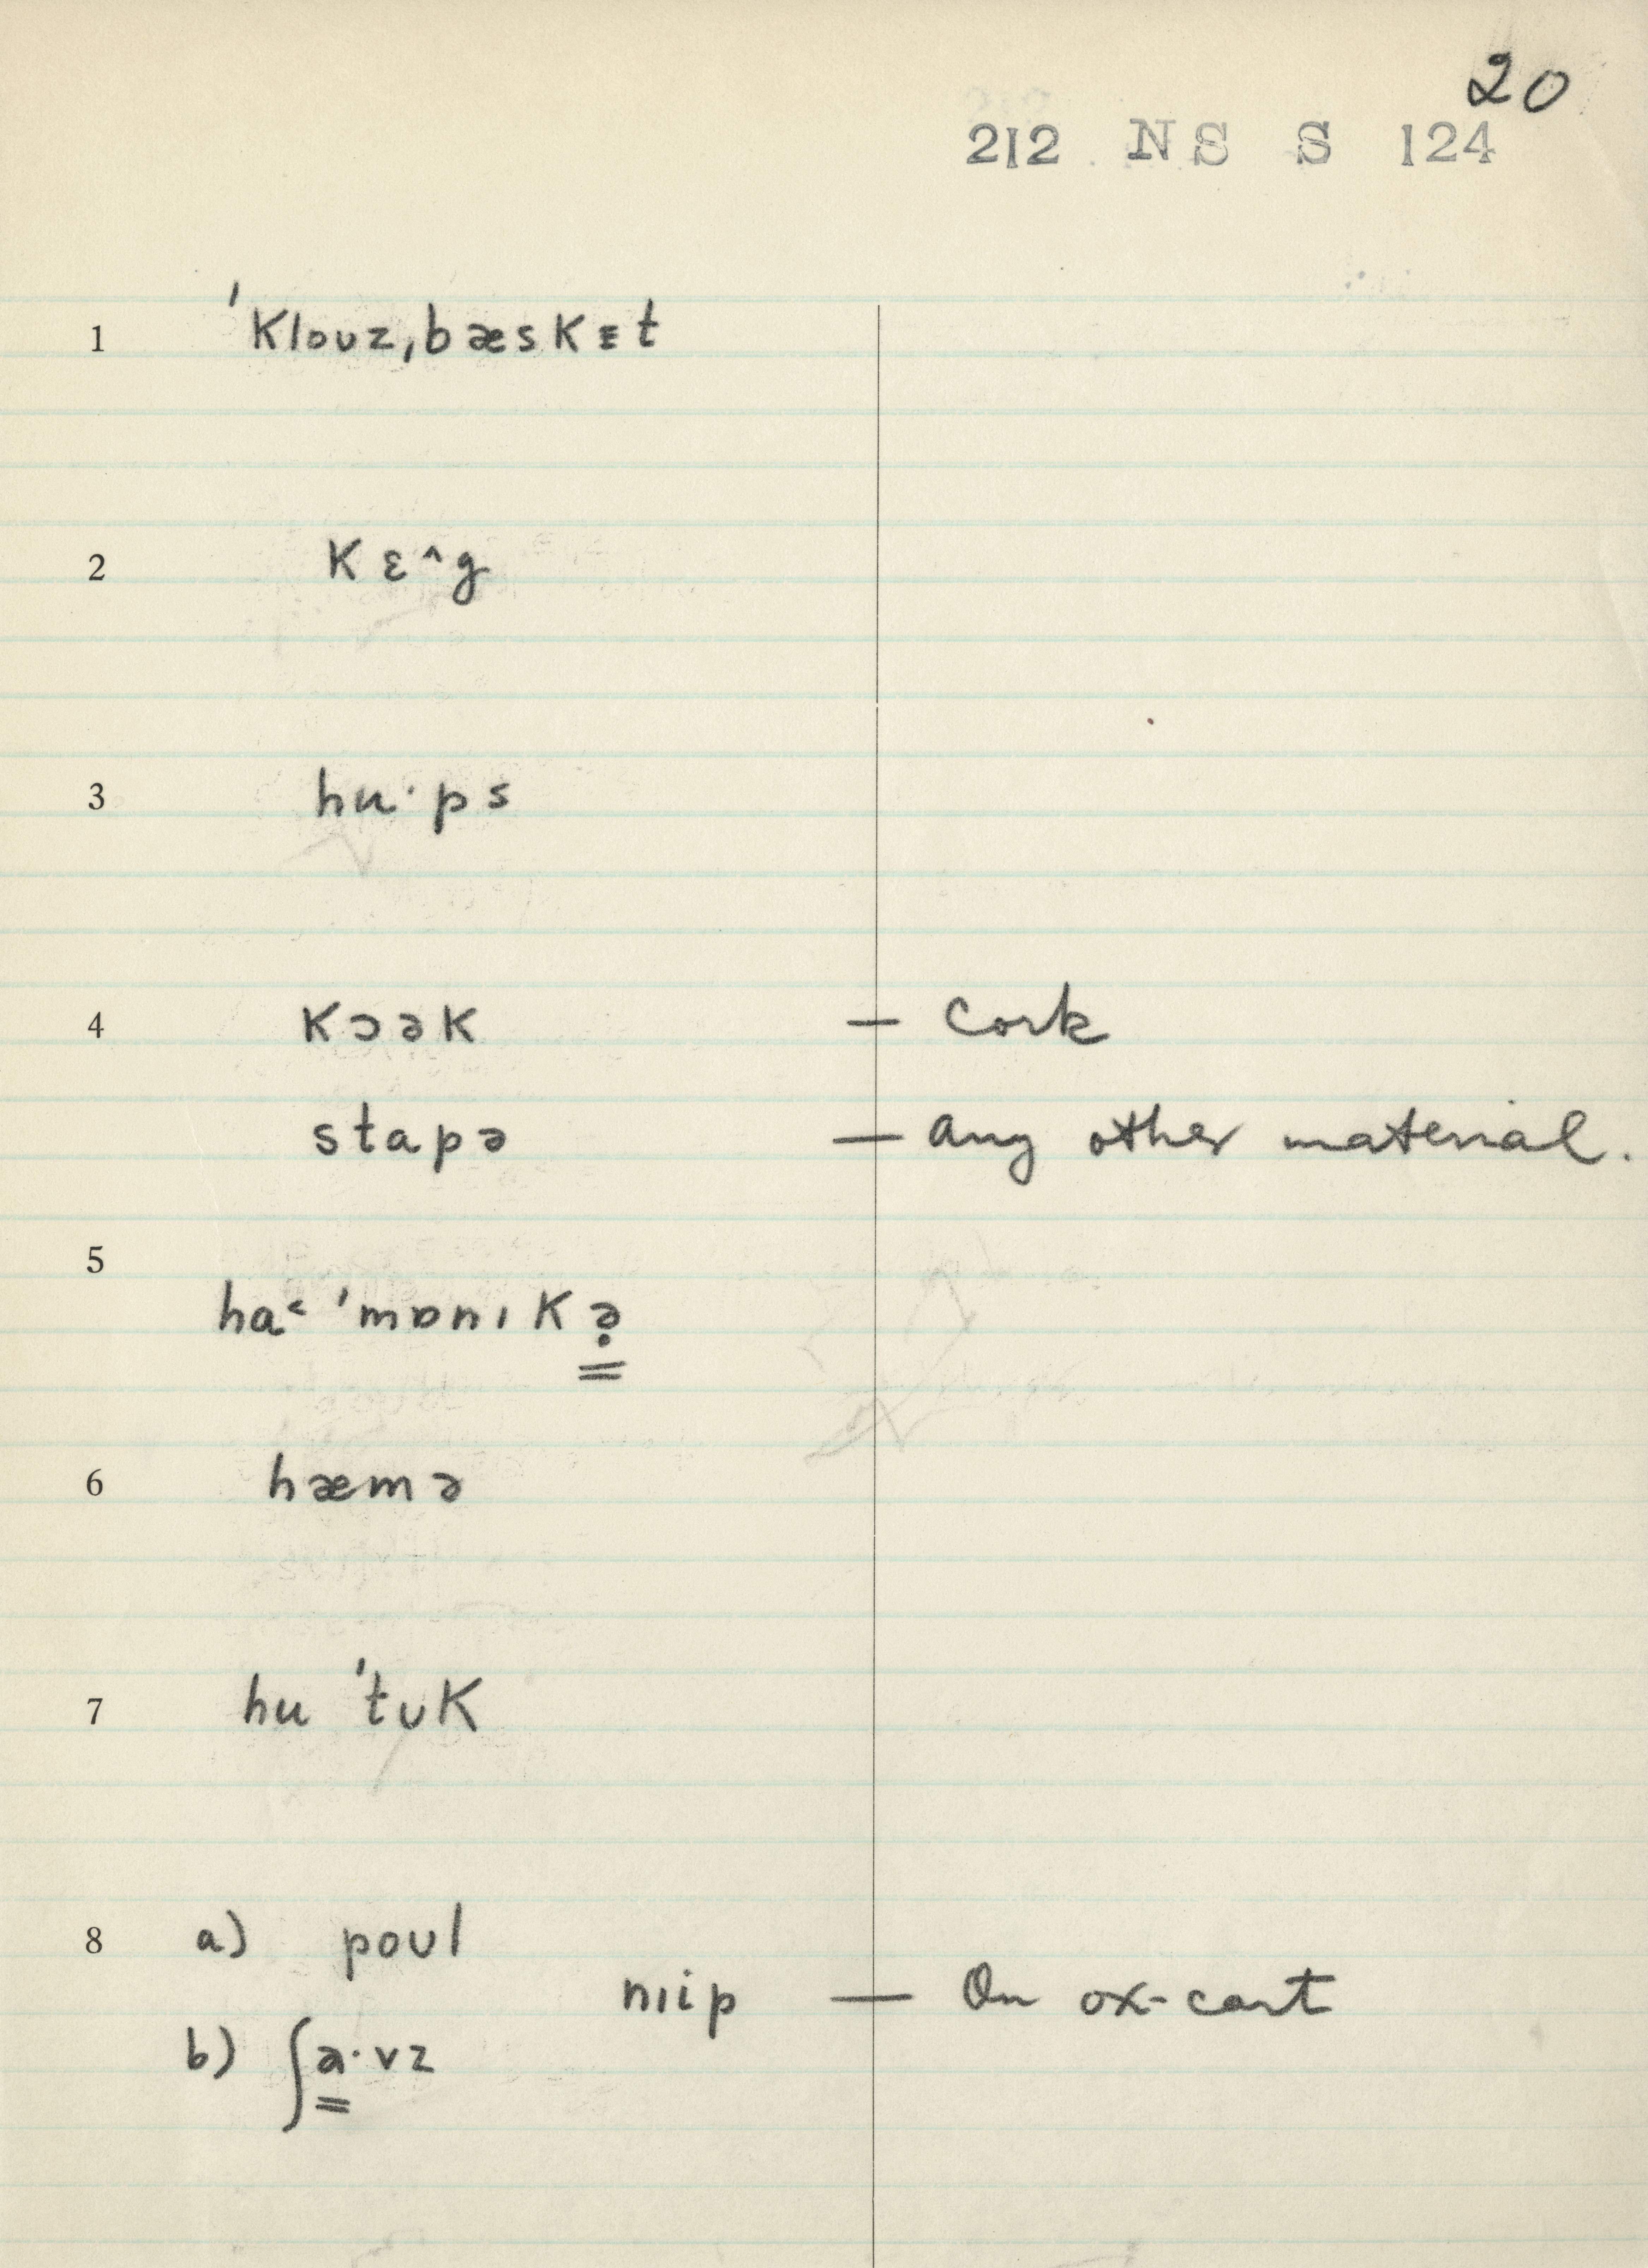 20
212 NS S 124
1 ˈkloʊz,bæskᴇt
2 kɛ^g
3 huˑps
4 kɔək — cork
stapə — any other material.
5 ha˂ ˈmɒnɪkə̣
6 hæmə
7 hu ˈtʊk
8 a) poʊl
nɪip — On ox-cart
b) ʃaˑvz